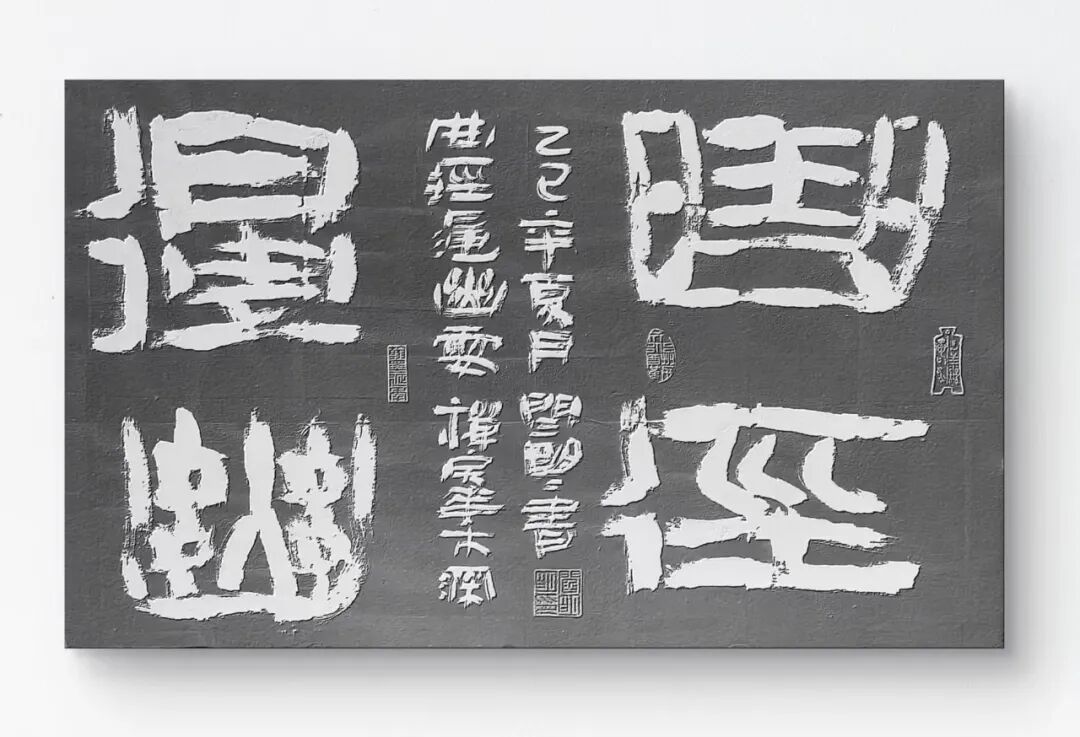 曲徑
通幽
曲徑通幽處 禪房花木深
乙巳年夏月 書